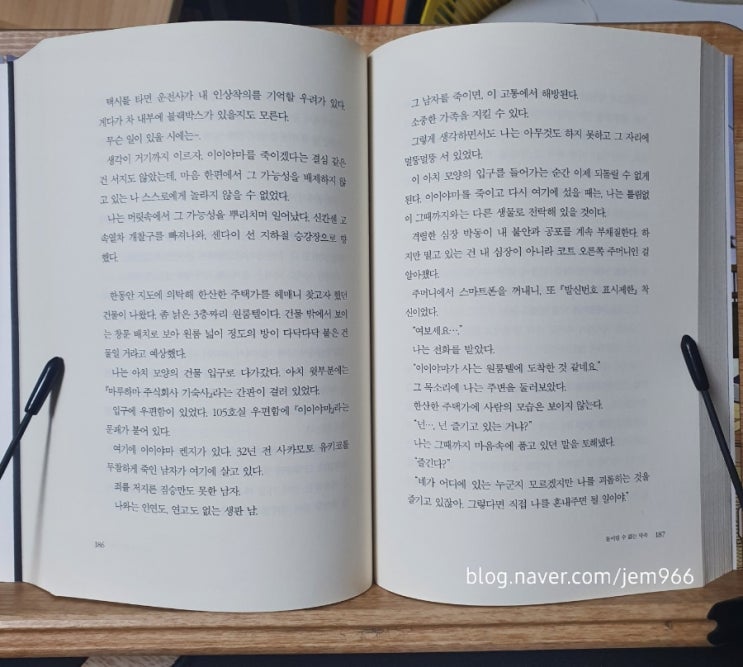 택시를 타면 운전사가 내 인상착의를 기억할 우려가 있다.
게다가 차 내부에 블랙박스가 있을지도 모른다.
무슨 일이 있을 시에는-.
생각이 거기까지 이르자, 이이야마를 죽이겠다는 결심 같은
건 서지도 않았는데, 마음 한편에서 그 가능성을 배제하지 않
고 있는 나 스스로에게 놀라지 않을 수 없었다.
나는 머릿속에서 그 가능성을 뿌리치며 일어났다. 신칸센 고
속열차 개찰구를 빠져나와, 센다이 선 지하철 승강장으로 향
했다.
한동안 지도에 의탁해 한산한 주택가를 헤매니 찾고자 했던
건물이 나왔다. 좀 낡은 3층짜리 원룸텔이다. 건물 밖에서 보이
는 창문 배치로 보아 원룸 넓이 정도의 방이 다닥다닥 붙은 건
물일 거라고 예상했다.
나는 아치 모양의 건물 입구로 다가갔다. 아치 윗부분에는
『마루하마 주식회사 기숙사』라는 간판이 걸려 있었다.
입구에 우편함이 있었다. 105호실 우편함에 『이이야마』라는
문패가 붙어 있다.
여기에 이이야마 켄지가 있다. 32년 전 사카모토 유키코를
무참하게 죽인 남자가 여기에 살고 있다.
죄를 저지른 짐승만도 못한 남자.
나와는 인연도, 연고도 없는 생판 남.
186
그 남자를 죽이면, 이 고통에서 해방된다.
소중한 가족을 지킬 수 있다.
그렇게 생각하면서도 나는 아무것도 하지 못하고 그 자리에
멀뚱멀뚱 서 있었다.
이 아치 모양의 입구를 들어가는 순간 이제 되돌릴 수 없게
된다. 이이야마를 죽이고 다시 여기에 섰을 때는, 나는 틀림없
이 그때까지와는 다른 생물로 전락해 있을 것이다.
격렬한 심장 박동이 내 불안과 공포를 계속 부채질한다. 하
지만 떨고 있는 건 내 심장이 아니라 코트 오른쪽 주머니인 걸
알아챘다.
주머니에서 스마트폰을 꺼내니, 또 『발신번호 표시제한』 착
신이었다.
“여보세요….”
나는 전화를 받았다.
“이이야마가 사는 원룸텔에 도착한 것 같네요.”
그 목소리에 나는 주변을 둘러보았다.
한산한 주택가에 사람의 모습은 보이지 않는다.
“넌…, 넌 즐기고 있는 거냐?”
나는 그때까지 마음속에 품고 있던 말을 토해냈다.
“즐긴다?”
“네가 어디에 있는 누군지 모르겠지만 나를 괴롭히는 것을
즐기고 있잖아. 그렇다면 직접 나를 혼내주면 될 일이야.”
돌이킬 수 없는 약속 187
blog.naver.com/jem966